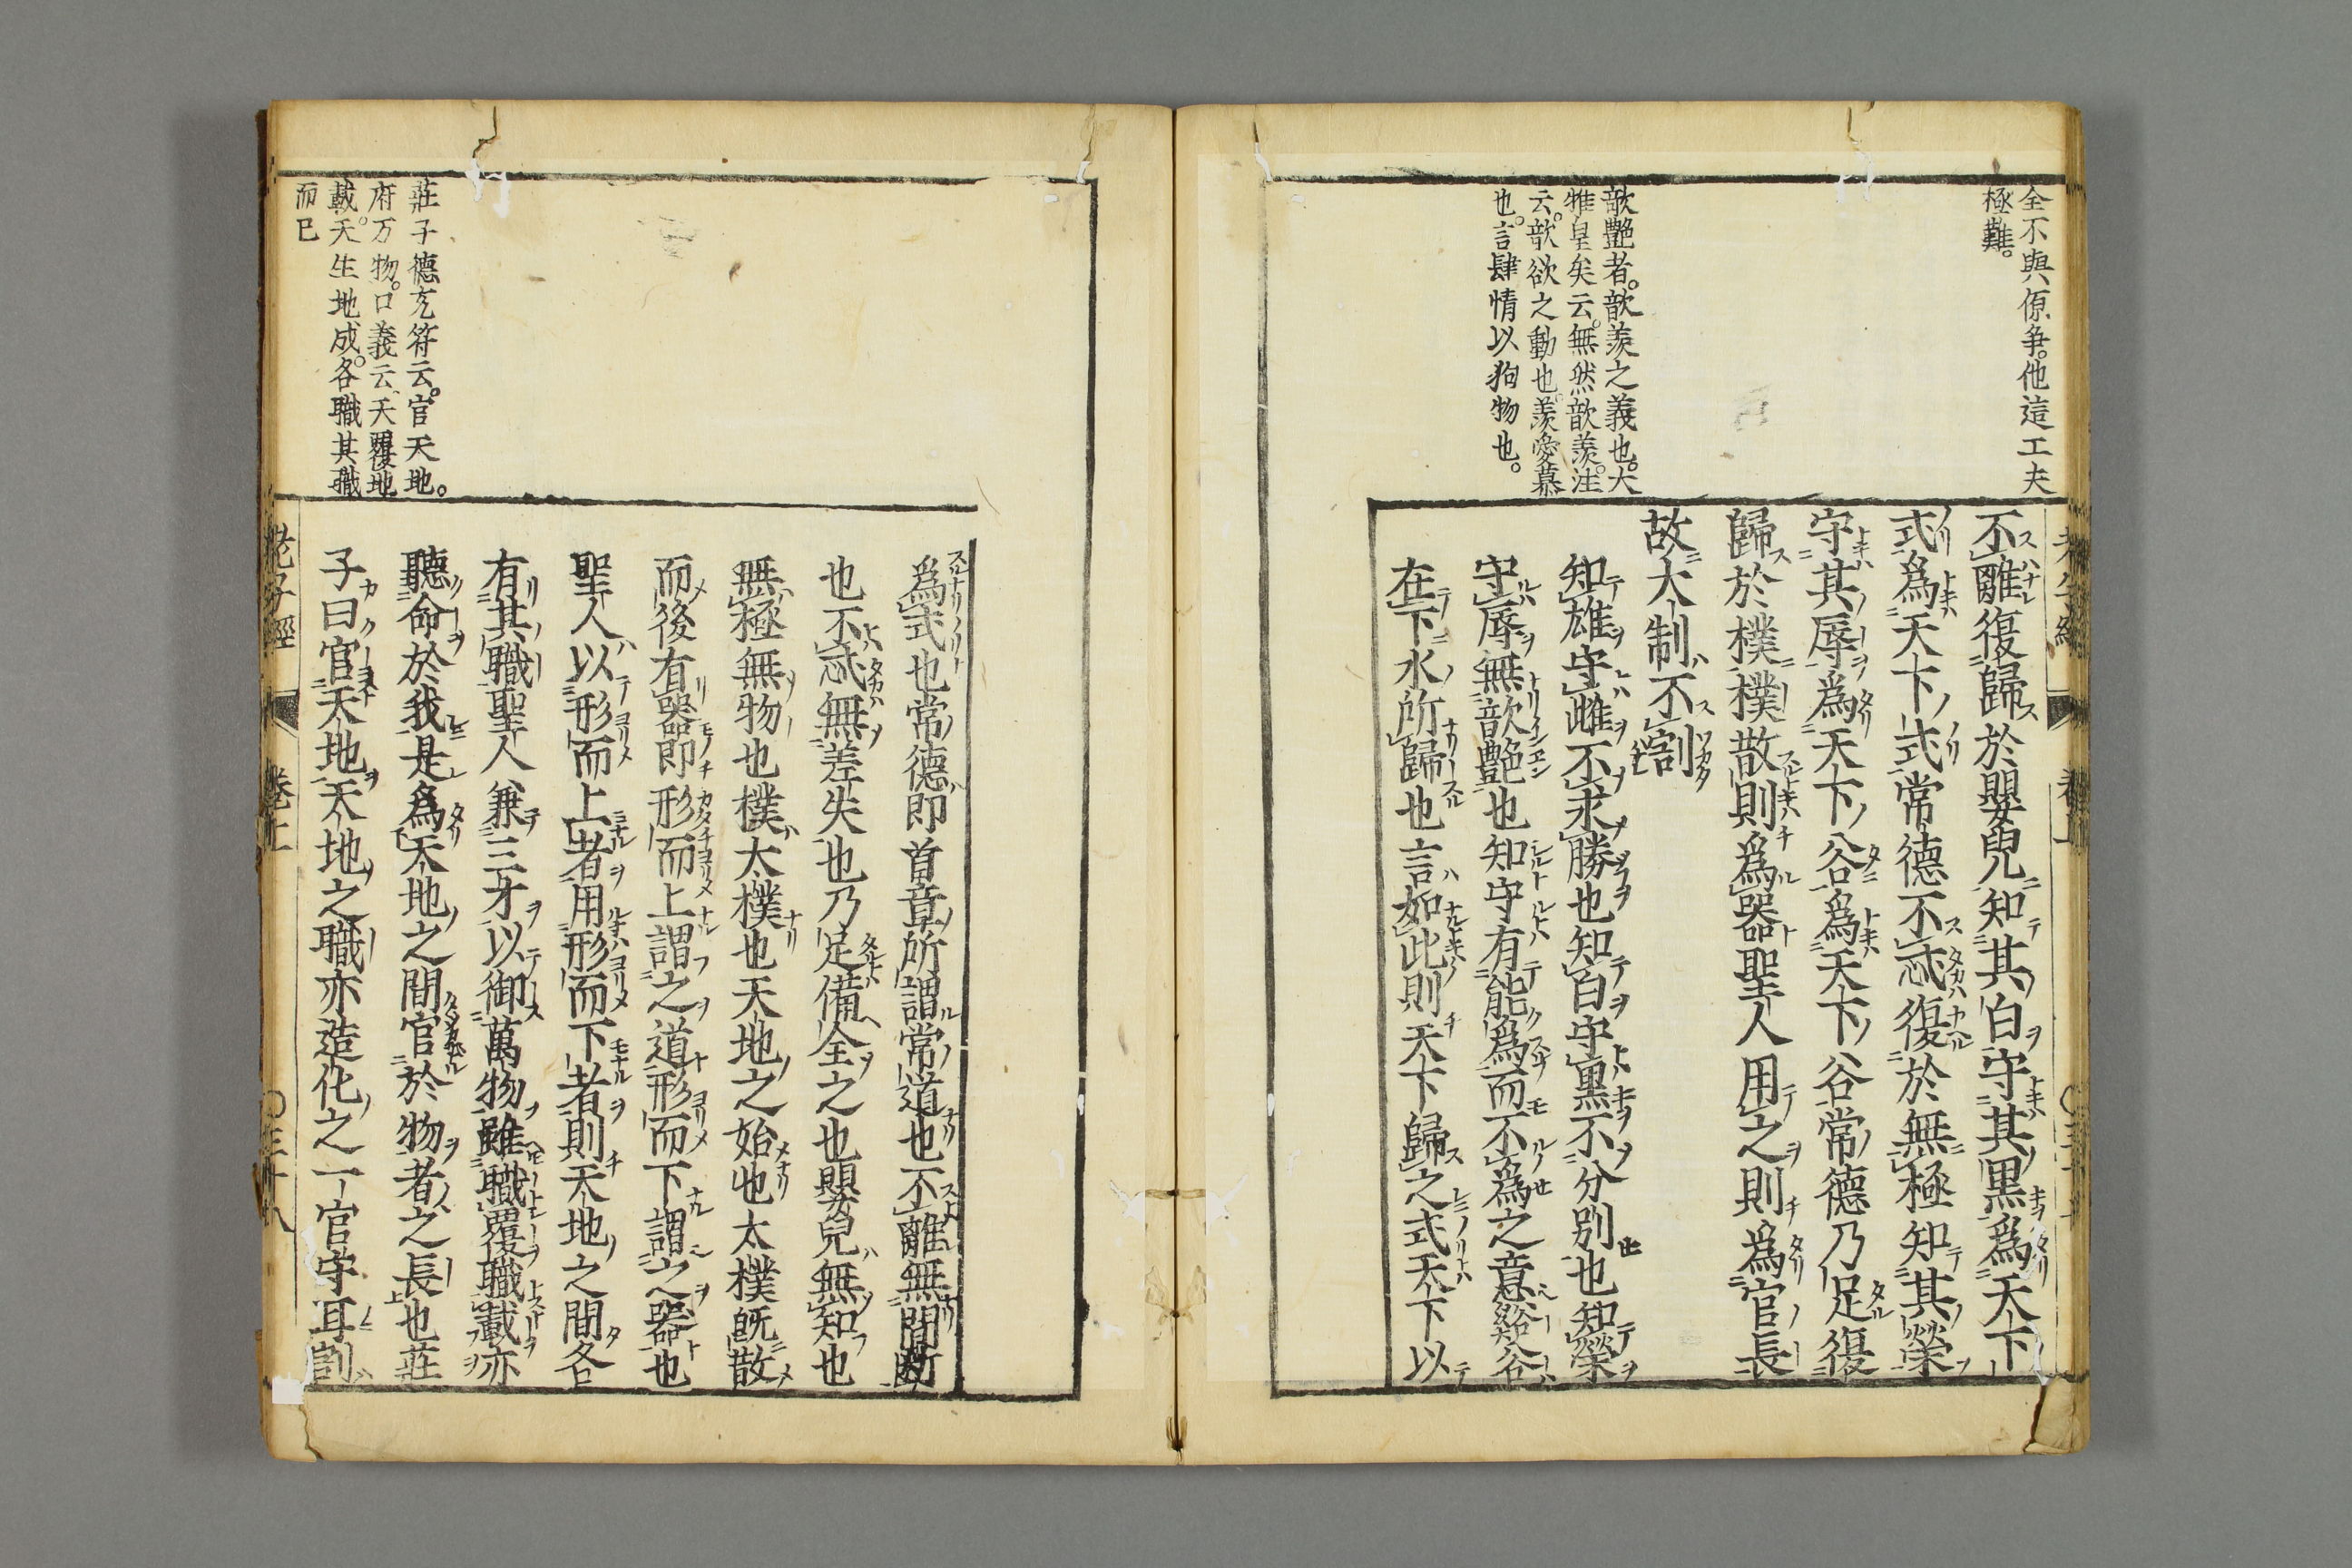 全不與你争。他這工夫
極難。
歆艷者。歆羨之義也。大
雅皇矣云。無然歆羨。注
云。歆欲之動也。羨愛慕
也。言肆情以狥物也。
不離復歸於嬰兒知其白守其黒爲天下
式爲天下式常德不忒復於無極知其榮
守其辱爲天下谷爲天下谷常德乃足復
歸於樸樸散則爲器聖人用之則爲官長
故大制不割
知雄守雌不求勝也知白守黒不分別也知榮
守辱無歆艷也知守有能爲而不爲之意谿谷
在下水所歸也言如此則天下歸之式天下以
莊子德充符云。官天地。
府万物。口義云、天覆地
載。天生地成。各職其職
而已
爲式也常德即首章所謂常道也不離無間斷
也不忒無差失也乃足備全之也嬰兒無知也
無極無物也樸太樸也天地之始也太樸既散
而後有器即形而上謂之道形而下謂之器也
聖人以形而上者用形而下者則天地之間各
有其職聖人兼三才以御萬物雖職覆職載亦
聽命於我是爲天地之間官於物者之長也莊
子曰官天地天地之職亦造化之一官守耳割
老子經 卷上 〇三十八